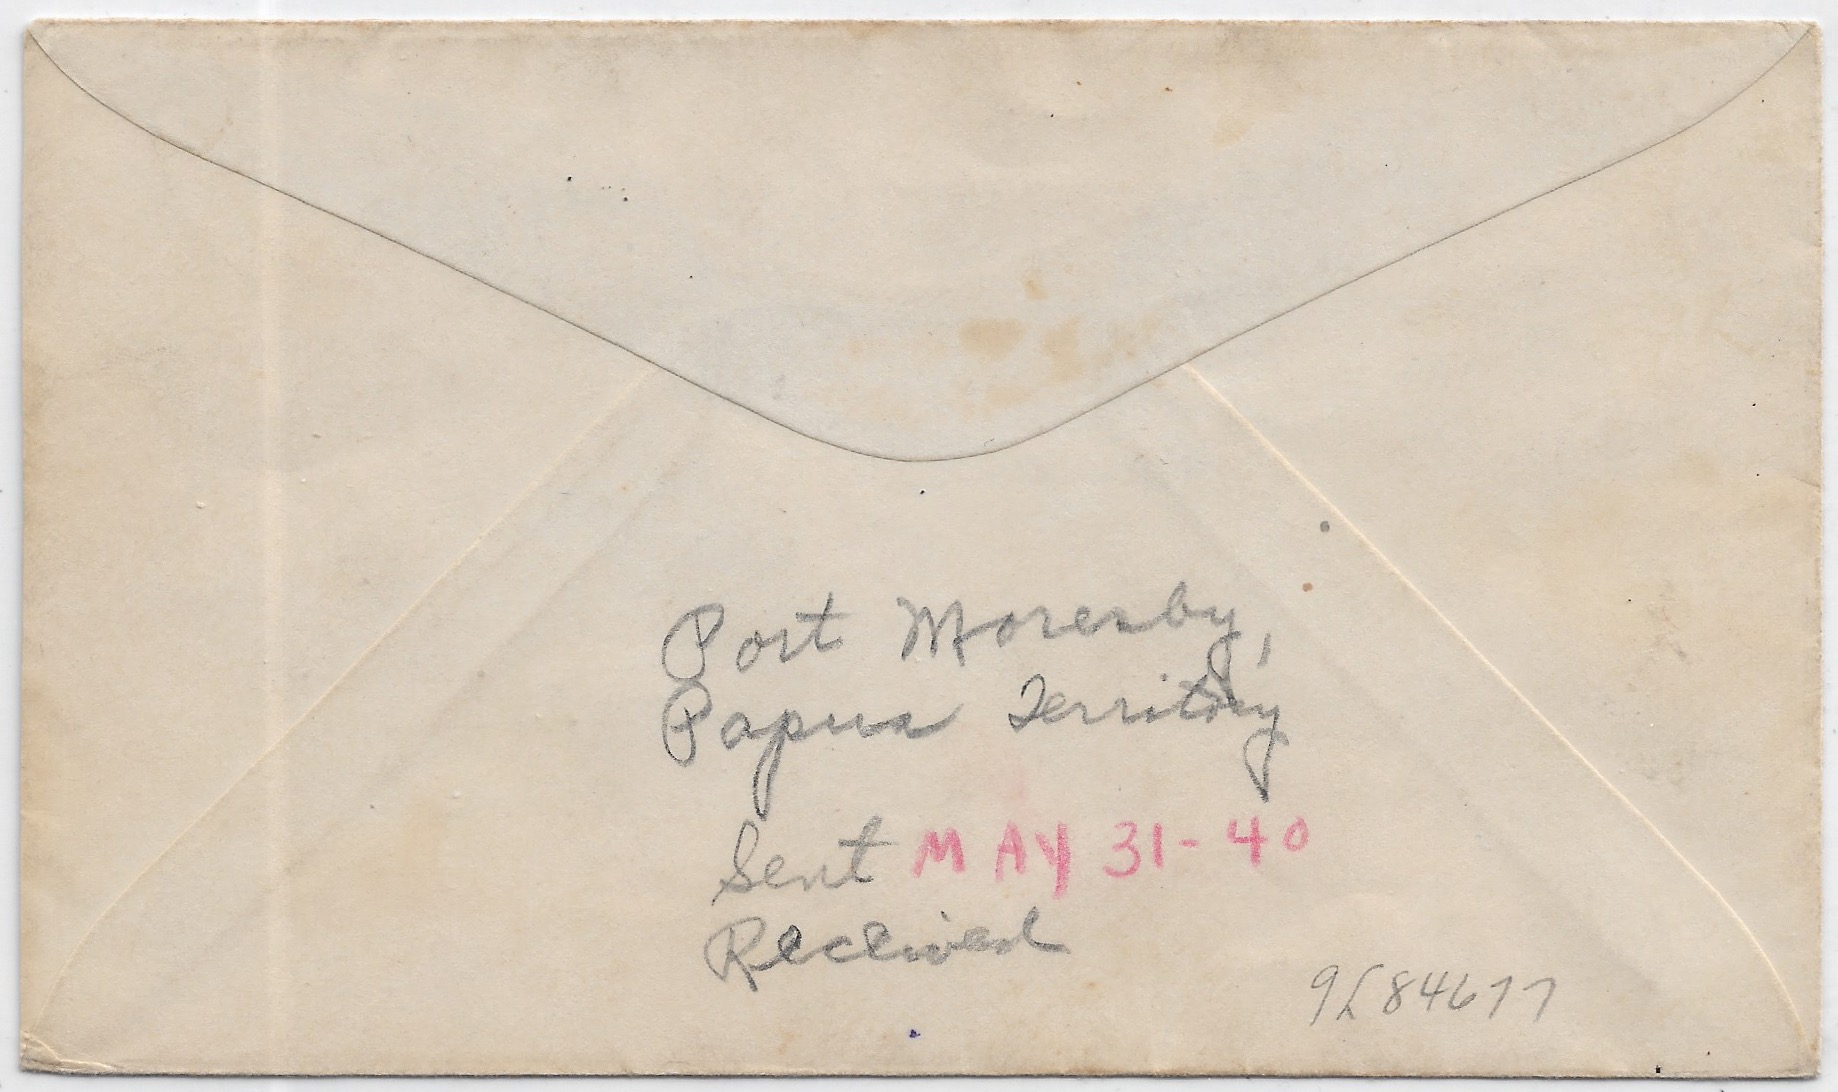 Port Moresby,
Papua Territory
Sent MAY 31-40
Received